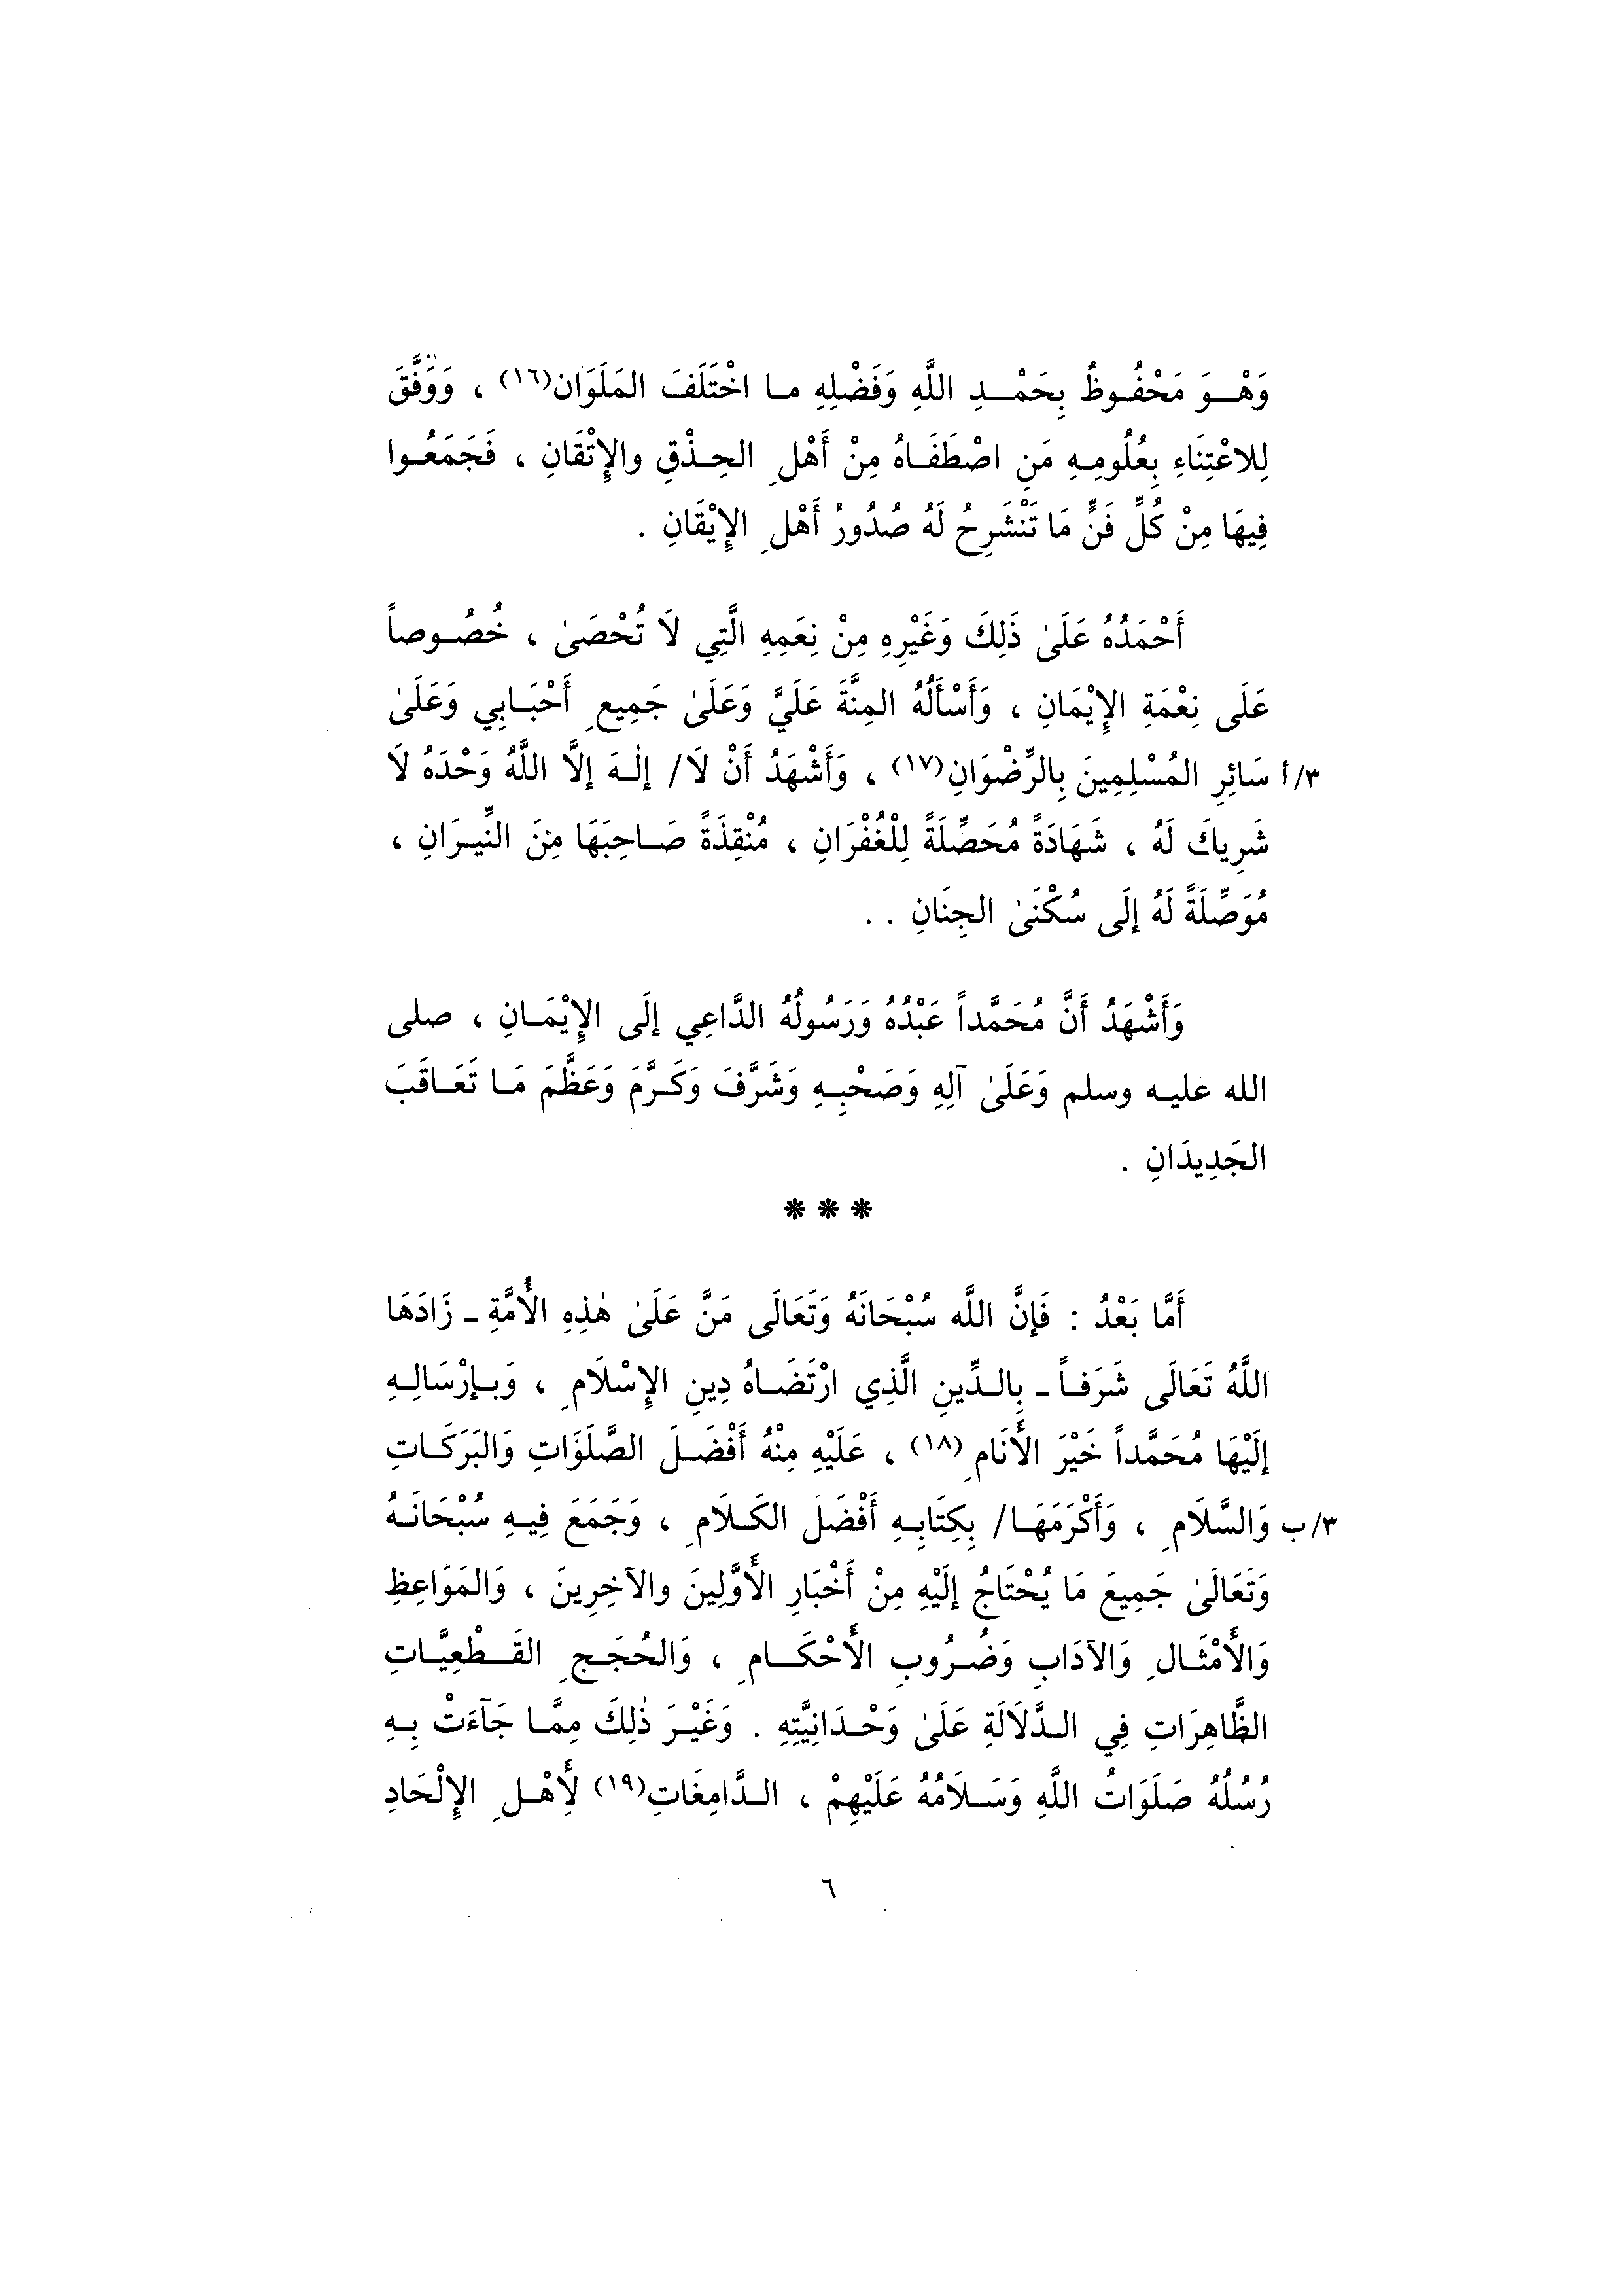 وَهْوَ مَحْفُوظٌ بِحَمْدِ اللَّهِ وَفَضْلِهِ ما اخْتَلَفَ المَلَوَان(١٦) ، وَوَفَّقَ
لِلاعْتِنَاءِ بِعُلُومِهِ مَنِ اصْطَفَاهُ مِنْ أَهْلِ الحِذْقِ والإِتْقَانِ ، فَجَمَعُوا
فِيهَا مِنْ كُلِّ فَنٍّ مَا تَنْشَرِحُ لَهُ صُدُورُ أَهْلِ الإِيْقَانِ .
أَحْمَدُهُ عَلَىٰ ذَلِكَ وَغَيْرِهِ مِنْ نِعَمِهِ الَّتِي لَا تُحْصَىٰ ، خُصُوصاً
عَلَى نِعْمَةِ الإِيْمَانِ ، وَأَسْأَلُهُ المِنَّةَ عَلَيَّ وَعَلَىٰ جَمِيعِ أَحْبَابِي وَعَلَىٰ
٣/أ سَائِرِ المُسْلِمِينَ بِالرِّضْوَانِ(١٧) ، وَأَشْهَدُ أَنْ لَا/ إِلٰهَ إلَّا اللَّهُ وَحْدَهُ لَا
شَرِيكَ لَهُ ، شَهَادَةً مُحَصِّلَةً لِلْغُفْرَانِ ، مُنْقِذَةً صَاحِبَهَا مِنَ النِّيرَانِ ،
مُوَصِّلَةً لَهُ إلَى سُكْنَىٰ الجِنَانِ . .
وَأَشْهَدُ أَنَّ مُحَمَّداً عَبْدُهُ وَرَسُولُهُ الدَّاعِي إلَى الإِيْمَانِ ، صلى
الله عليه وسلم وَعَلَىٰ آلِهِ وَصَحْبِهِ وَشَرَّفَ وَكَرَّمَ وَعَظَّمَ مَا تَعَاقَبَ
الجَدِيدَانِ .
***
أَمَّا بَعْدُ : فَإنَّ اللَّه سُبْحَانَهُ وَتَعَالَى مَنَّ عَلَىٰ هٰذِهِ الأُمَّةِ ـ زَادَهَا
اللَّهُ تَعَالَى شَرَفاً ـ بِالدِّينِ الَّذِي ارْتَضَاهُ دِينِ الإِسْلَامِ ، وَبِإرْسَالِهِ
إلَيْهَا مُحَمَّداً خَيْرَ الأَنَامِ(١٨) ، عَلَيْهِ مِنْهُ أَفْضَلَ الصَّلَوَاتِ وَالبَرَكَاتِ
٣/ب وَالسَّلَامِ ، وَأَكْرَمَهَا/ بِكِتَابِهِ أَفْضَلَ الكَلَامِ ، وَجَمَعَ فِيهِ سُبْحَانَهُ
وَتَعَالَىٰ جَمِيعَ مَا يُحْتَاجُ إلَيْهِ مِنْ أَخْبَارِ الأَوَّلِينَ والآخِرِينَ ، وَالمَوَاعِظِ
وَالأَمْثَالِ وَالآدَابِ وَضُرُوبِ الأَحْكَامِ ، وَالحُجَجِ القَطْعِيَّاتِ
الظَّاهِرَاتِ فِي الدَّلَالَةِ عَلَىٰ وَحْدَانِيَّتِهِ . وَغَيْرَ ذٰلِكَ مِمَّا جَآءَتْ بِهِ
رُسُلُهُ صَلَوَاتُ اللَّهِ وَسَلَامُهُ عَلَيْهِمْ ، الدَّامِغَاتِ(١٩) لأَهْلِ الإِلْحَادِ
٦